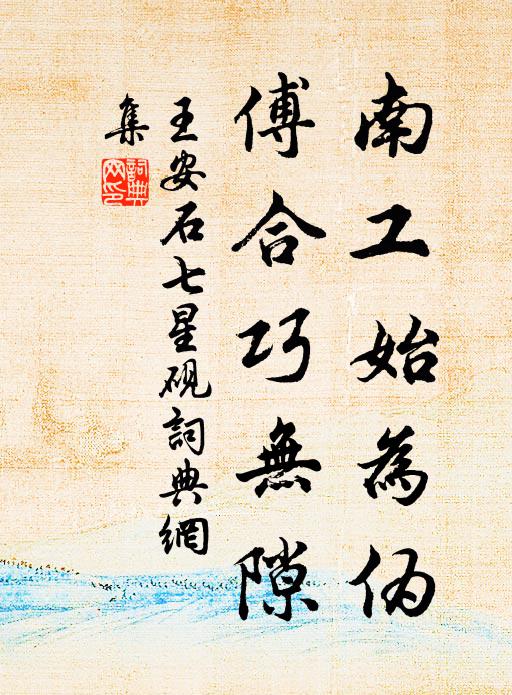 南工始為伪
傅合巧無隙
王安石七星硯詞典網
集
詞典網印